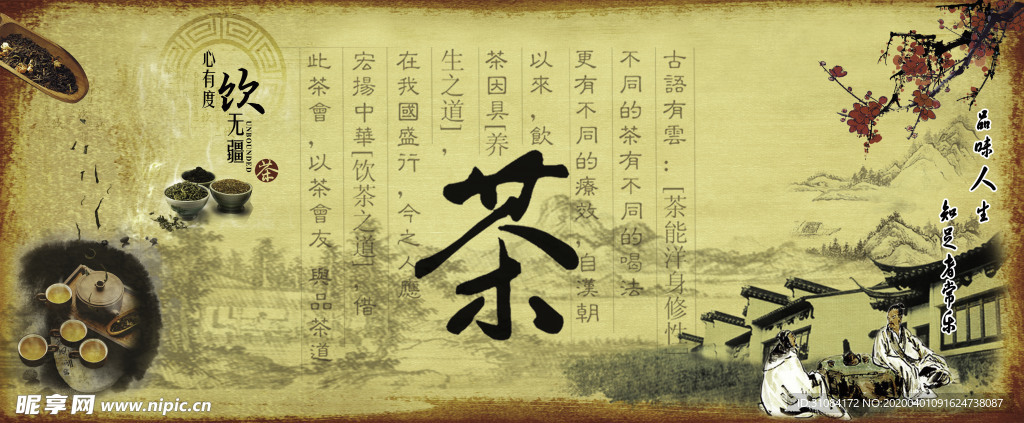 心有度
饮无疆
UNBOUNDED
茶
古語有雲：[茶能洋身修性
不同的茶有不同的喝法
更有不同的療效，自漢朝
以來，飲
茶因具[养
生之道]，
在我國盛行，今之人應
宏揚中華[饮茶之道]，借
此茶會，以茶會友，與品茶道
茶
品味人生
知足者常乐
昵享网 www.nipic.cn
ID:31084172 NO:20200401091624738087